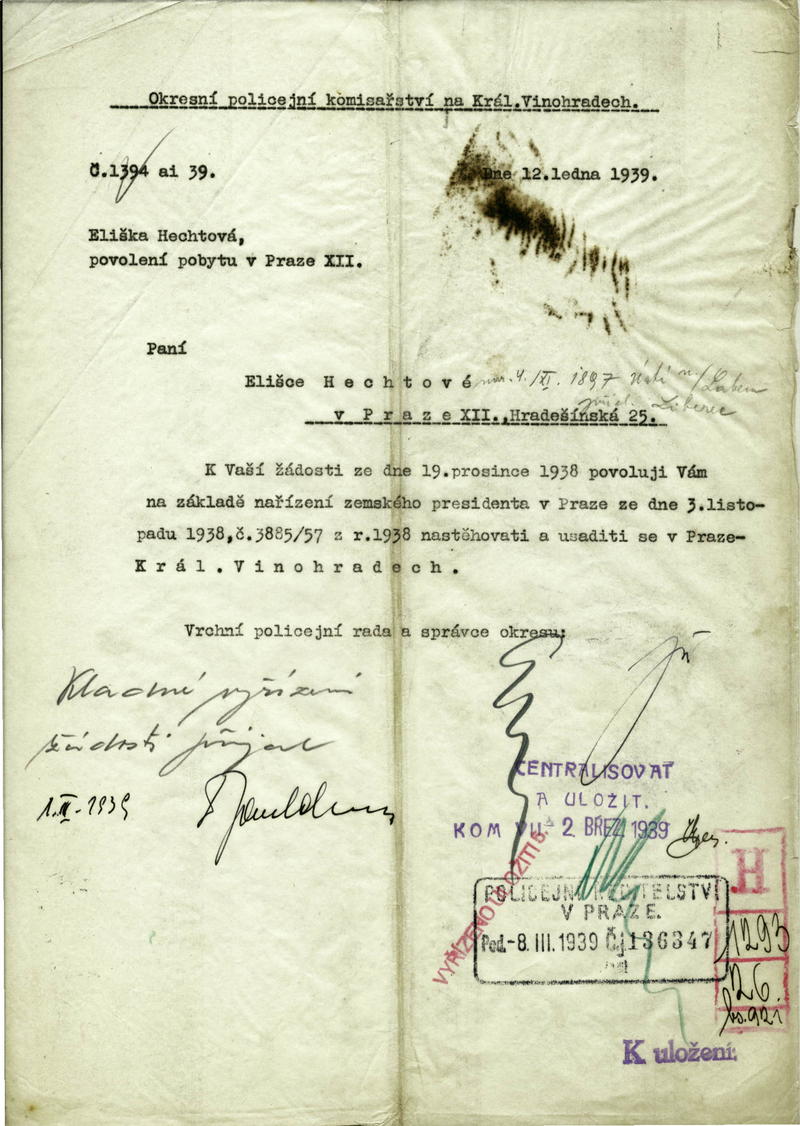 Okresní policejní komisařství na Král.Vinohradech.
Č.1394 ai 39.
Dne 12.ledna 1939.
Eliška Hechtová,
povolení pobytu v Praze XII.
Paní
Elišce Hechtové nar. 4./XI. 1897 Ústí n/Labem
přísl. Liberec
v Praze XII.,Hradešínská 25.
K Vaší žádosti ze dne 19.prosince 1938 povoluji Vám
na základě nařízení zemského presidenta v Praze ze dne 3.listo-
padu 1938,č.3885/57 z r.1938 nastěhovati a usaditi se v Praze-
Král.Vinohradech.
Vrchní policejní rada a správce okresu:
Kladné vyřízení
žádosti přijal
1.III.1939
CENTRALISOVAT
A ULOŽIT.
KOM VII. 2. BŘEZ. 1939
VYŘÍZENO ULOŽITI
POLICEJNÍ ŘEDITELSTVÍ
V PRAZE.
Pod.-8.III.1939 Čj.136347
H
1293
26.
K uložení.